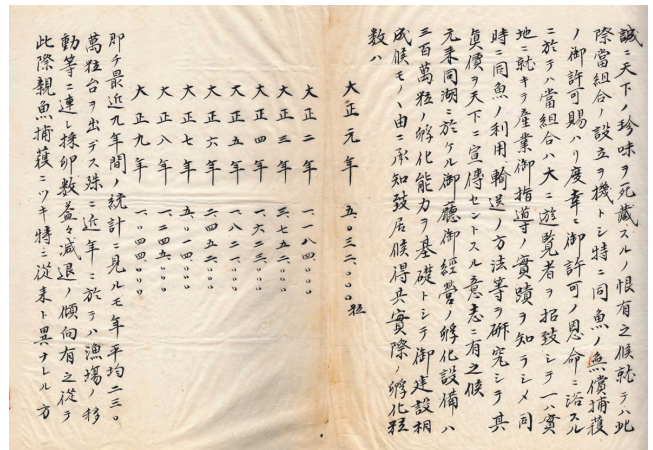 誠ニ天下ノ珍味ヲ死蔵スルノ恨有之候就テハ此
際當組合ノ設立ヲ機トシ特ニ同魚ノ無償捕獲
ノ御許可賜ハリ度幸ニ御許可ノ恩命ニ浴スル
ニ於テハ當組合ハ大ニ遊覧者ヲ招致シテ一ハ實
地ニ就キテ産業御指導ノ實蹟ヲ知ラシメ同
時ニ同魚ノ利用輸送ノ方法等ヲ研究シテ其
眞價ヲ天下ニ宣傳セントスル意志ニ有之候
元来同湖ニ於ケル御廳御経營ノ孵化設備ハ
三百萬粒ノ孵化能力ヲ基礎トシテ御建設相
成候モノヽ由ニ承知致居候得共實際ノ孵化粒
数ハ
大正元年 五〇三二、〇〇〇粒
大正二年 一、一八四、〇〇〇
大正三年 三、七五二、〇〇〇
大正四年 一、六二三、〇〇〇
大正五年 一、八二一、〇〇〇
大正六年 二、四五二、〇〇〇
大正七年 五、〇一四、〇〇〇
大正八年 一、二四五、〇〇〇
大正九年 一、〇四四、〇〇〇
即チ最近九年間ノ統計ニ見ルモ年平均二三〇
萬粒台ヲ出デス殊ニ近年ニ於テハ漁場ノ移
動等ニ連レ採卵数益々減退ノ傾向有之従テ
此際親魚捕獲ニツキ特ニ従来ト異ナレル方